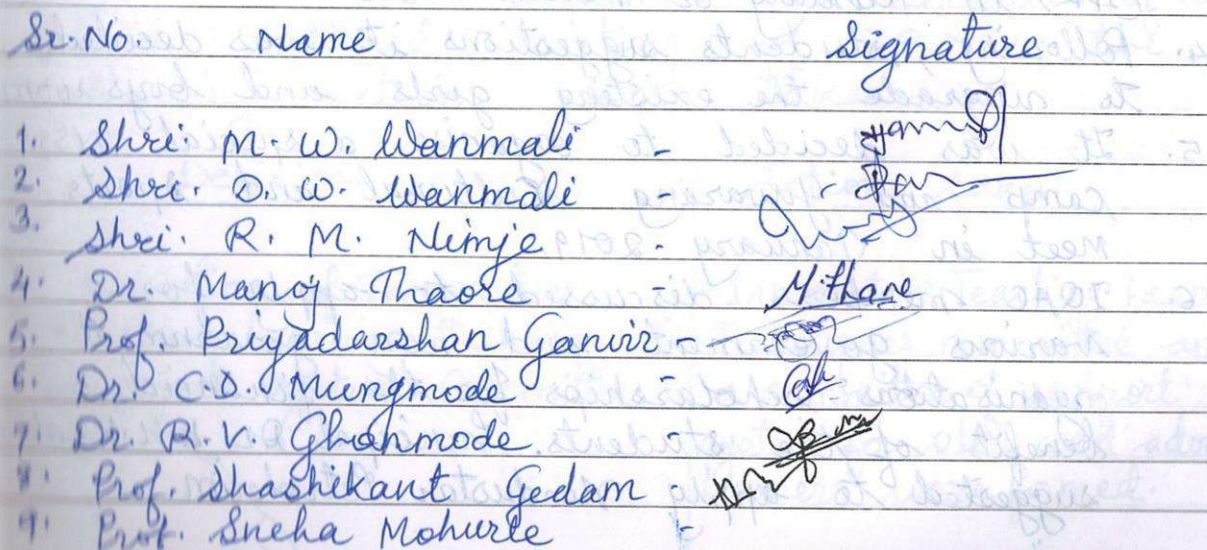 Sr. No. Name Signature
1. Shri. M. W. Wanmali -
2. Shri. D. W. Wanmali -
3. Shri. R. M. Nimje -
4. Dr. Manoj Thaore - M. Thaore
5. Prof. Priyadarshan Ganvir -
6. Dr. C.D. Mungmode -
7. Dr. R.V. Ghanmode -
8. Prof. Shashikant Gedam -
9. Prof. Sneha Mohurle -